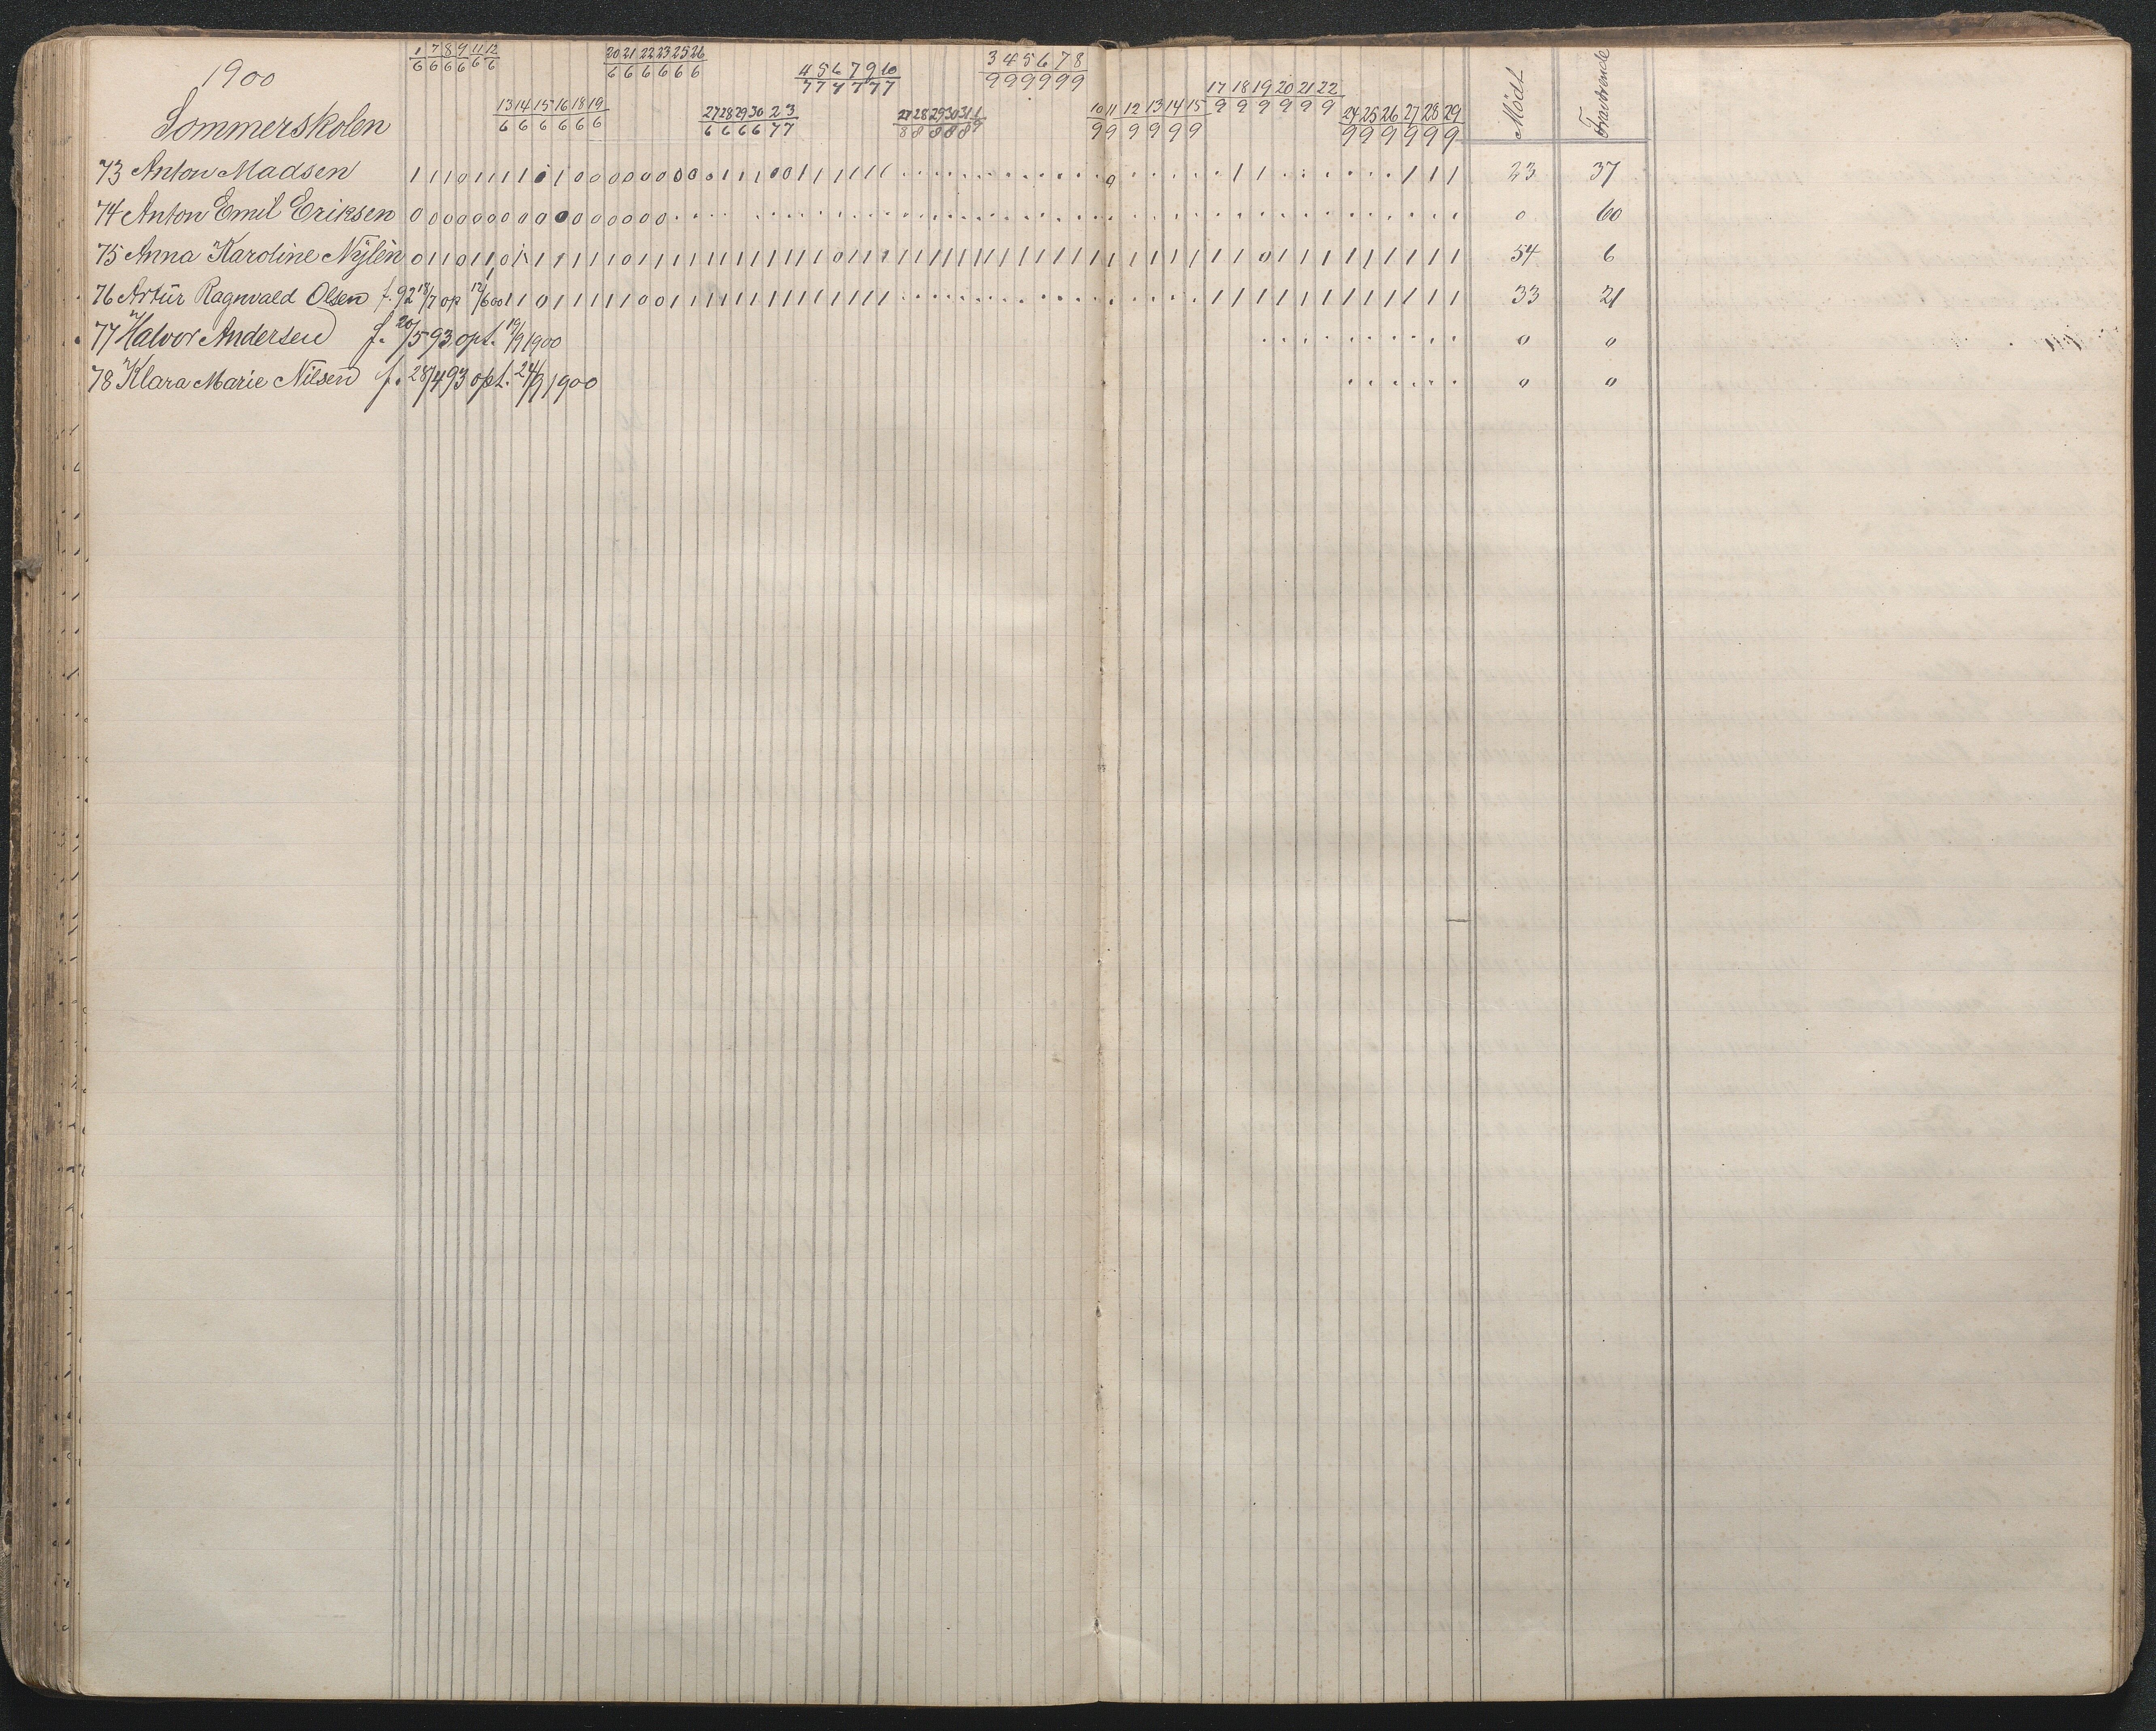 1900
Sommerskolen
1/6 7/6 8/6 9/6 11/6 12/6
13/6 14/6 15/6 16/6 18/6 19/6
20/6 21/6 22/6 23/6 25/6 26/6
27/6 28/6 29/6 30/6 2/7 3/7
4/7 5/7 6/7 7/7 9/7 10/7
27/8 28/8 29/8 30/8 31/8 1/9
3/9 4/9 5/9 6/9 7/9 8/9
10/9 11/9 12/9 13/9 14/9 15/9
17/9 18/9 19/9 20/9 21/9 22/9
24/9 25/9 26/9 27/9 28/9 29/9
Mødt Fraværende
73 Anton Madsen 23 37
74 Anton Emil Eriksen 0 60
75 Anna Karoline Nylén 54 6
76 Artŭr Ragnvald Olsen f. 92 18/7 op 12/6 00 33 21
77 Halvor Andersen f. 20/5 93 opt. 19/9 1900 0 0
78 Klara Marie Nilsen f. 28/4 93 opt. 24/9 1900 0 0